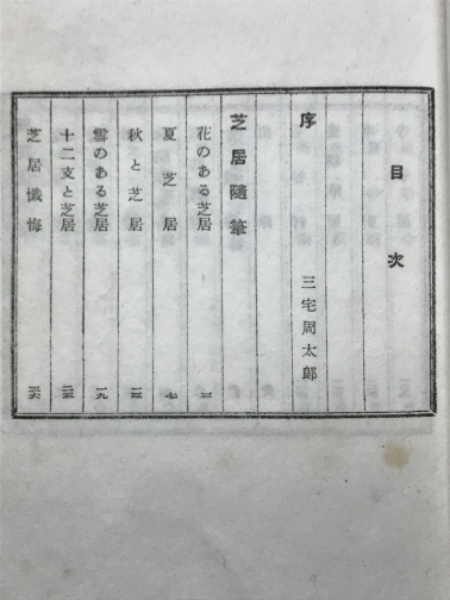 目次
序 三宅周太郎
芝居隨筆
花のある芝居 三
夏芝居 七
秋と芝居
雪のある芝居 一九
十二支と芝居
芝居懺悔